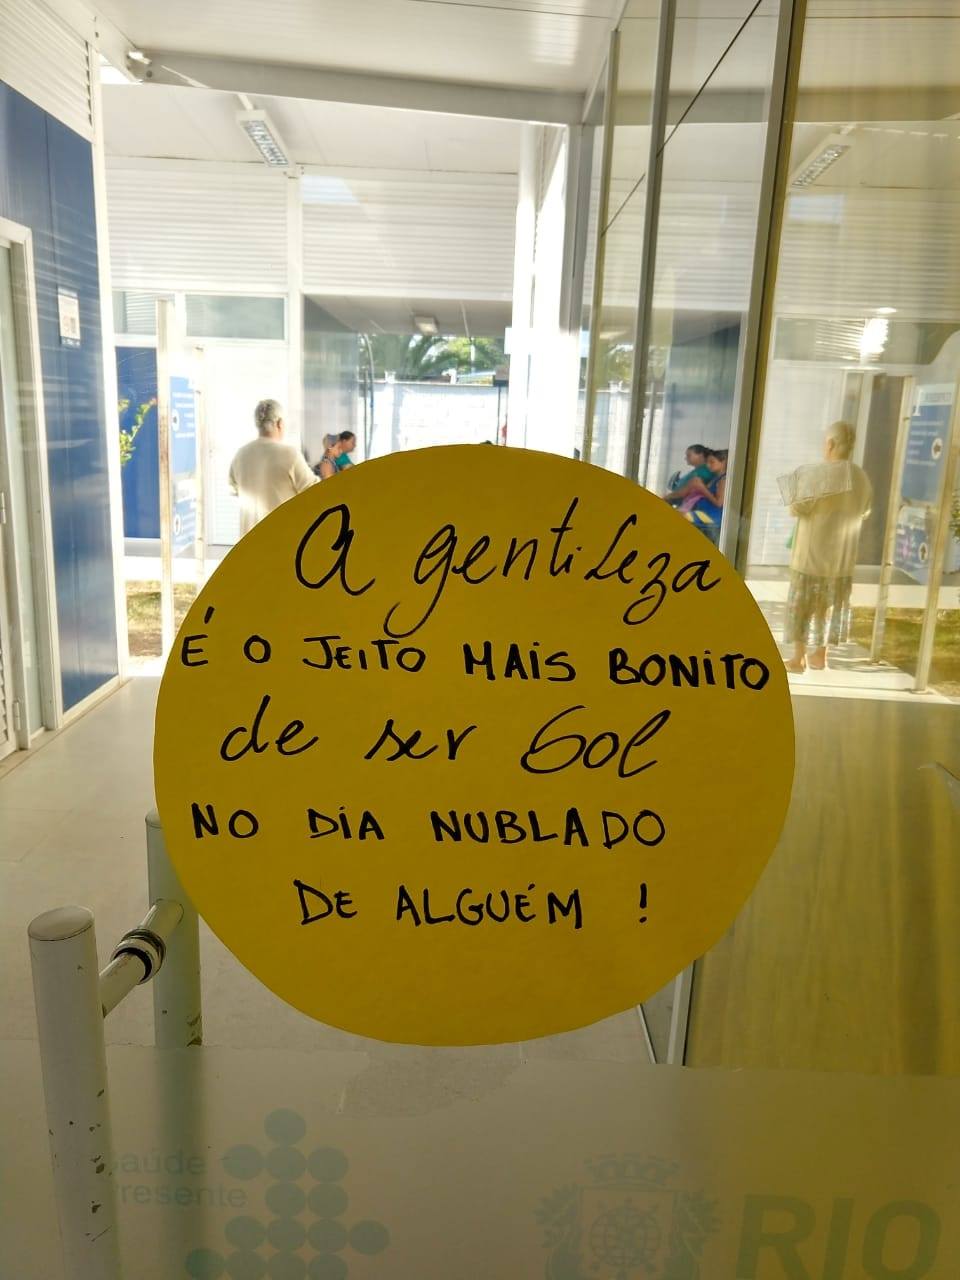 A gentileza
É O JEITO MAIS BONITO
de ser Sol
NO DIA NUBLADO
DE ALGUÉM !
saúde
presente
RIO